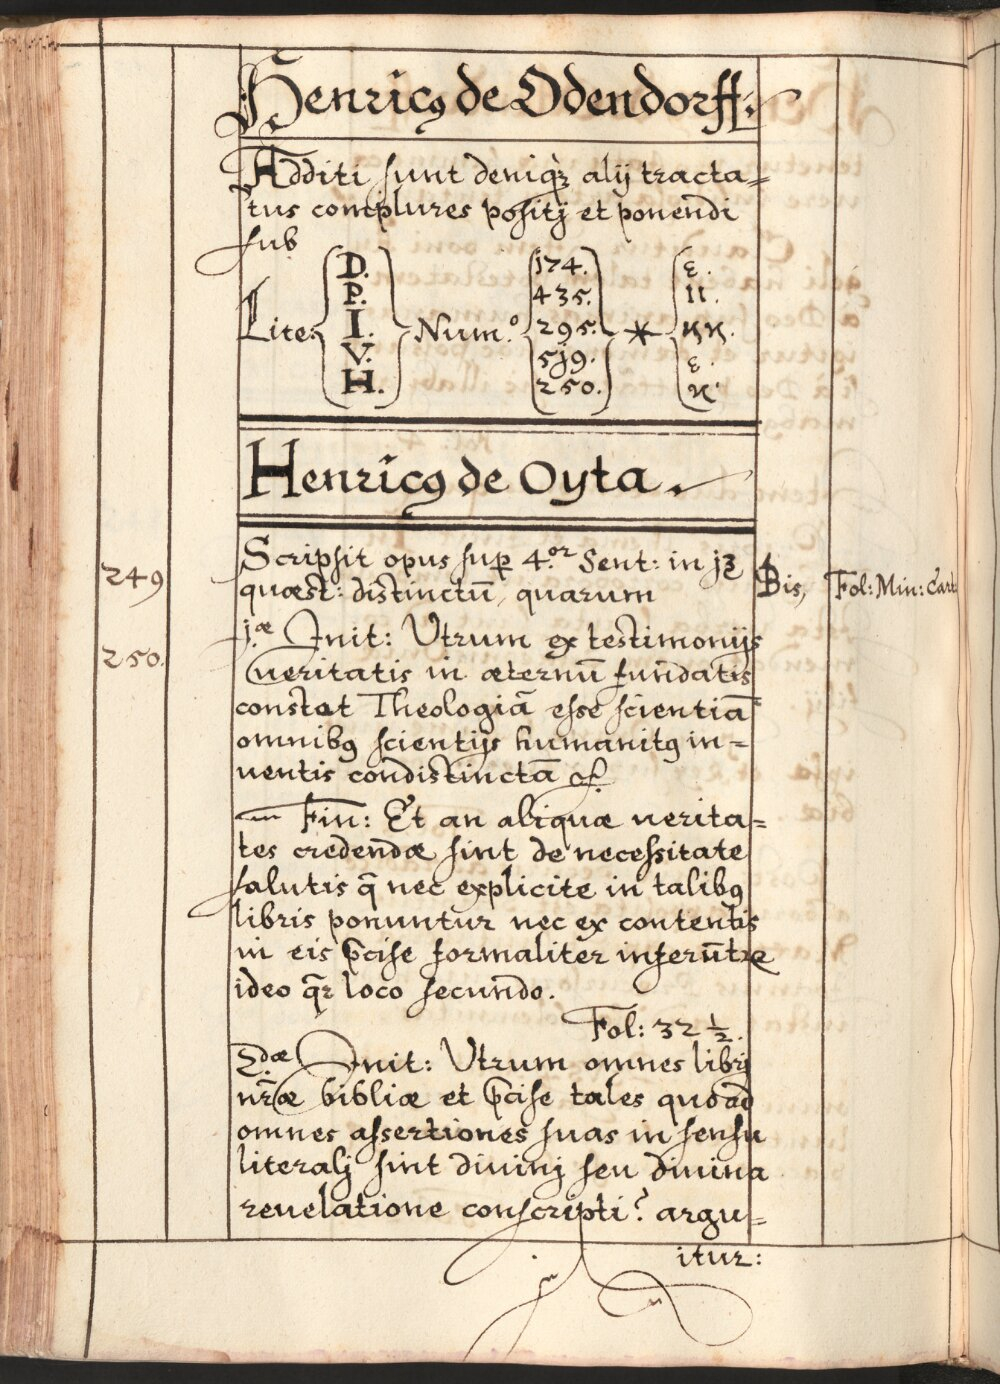 Henricꝯ de Odendorff.
Additi sunt deniqꝫ alij tracta=
tus complures positj et ponendi
sub
Lite: D. P. I. V. H. Num.º 174. 435. 295. 5j9. 250. * ε. II. κκ. ε. κ.
Henricꝯ de Oyta.
Scripsit opus sup 4.or Sent: in j3
quæst: distinctū, quarum
249
Bis,
Fol: Min: Cart
j.æ Init: Utrum ex testimonijs
250.
veritatis in æternū fundatis
constat Theologiā esse scientiā
omnibꝯ scientijs humanitꝯ in=
ventis condistinctā
Fin: Et an aliquæ verita=
tes credendæ sint de necessitate
salutis q̄ nec explicite in talibꝯ
libris ponuntur nec ex contentis
in eis p̄cise formaliter inferūtr
ideo q̄r loco secundo.
Fol: 32 ½.
2.dæ Init: Utrum omnes libri
nr̄æ bibliæ et p̄cise tales quoad
omnes assertiones suas in sensu
literalj sint divinj seu divina
revelatione conscripti? argu=
itur: